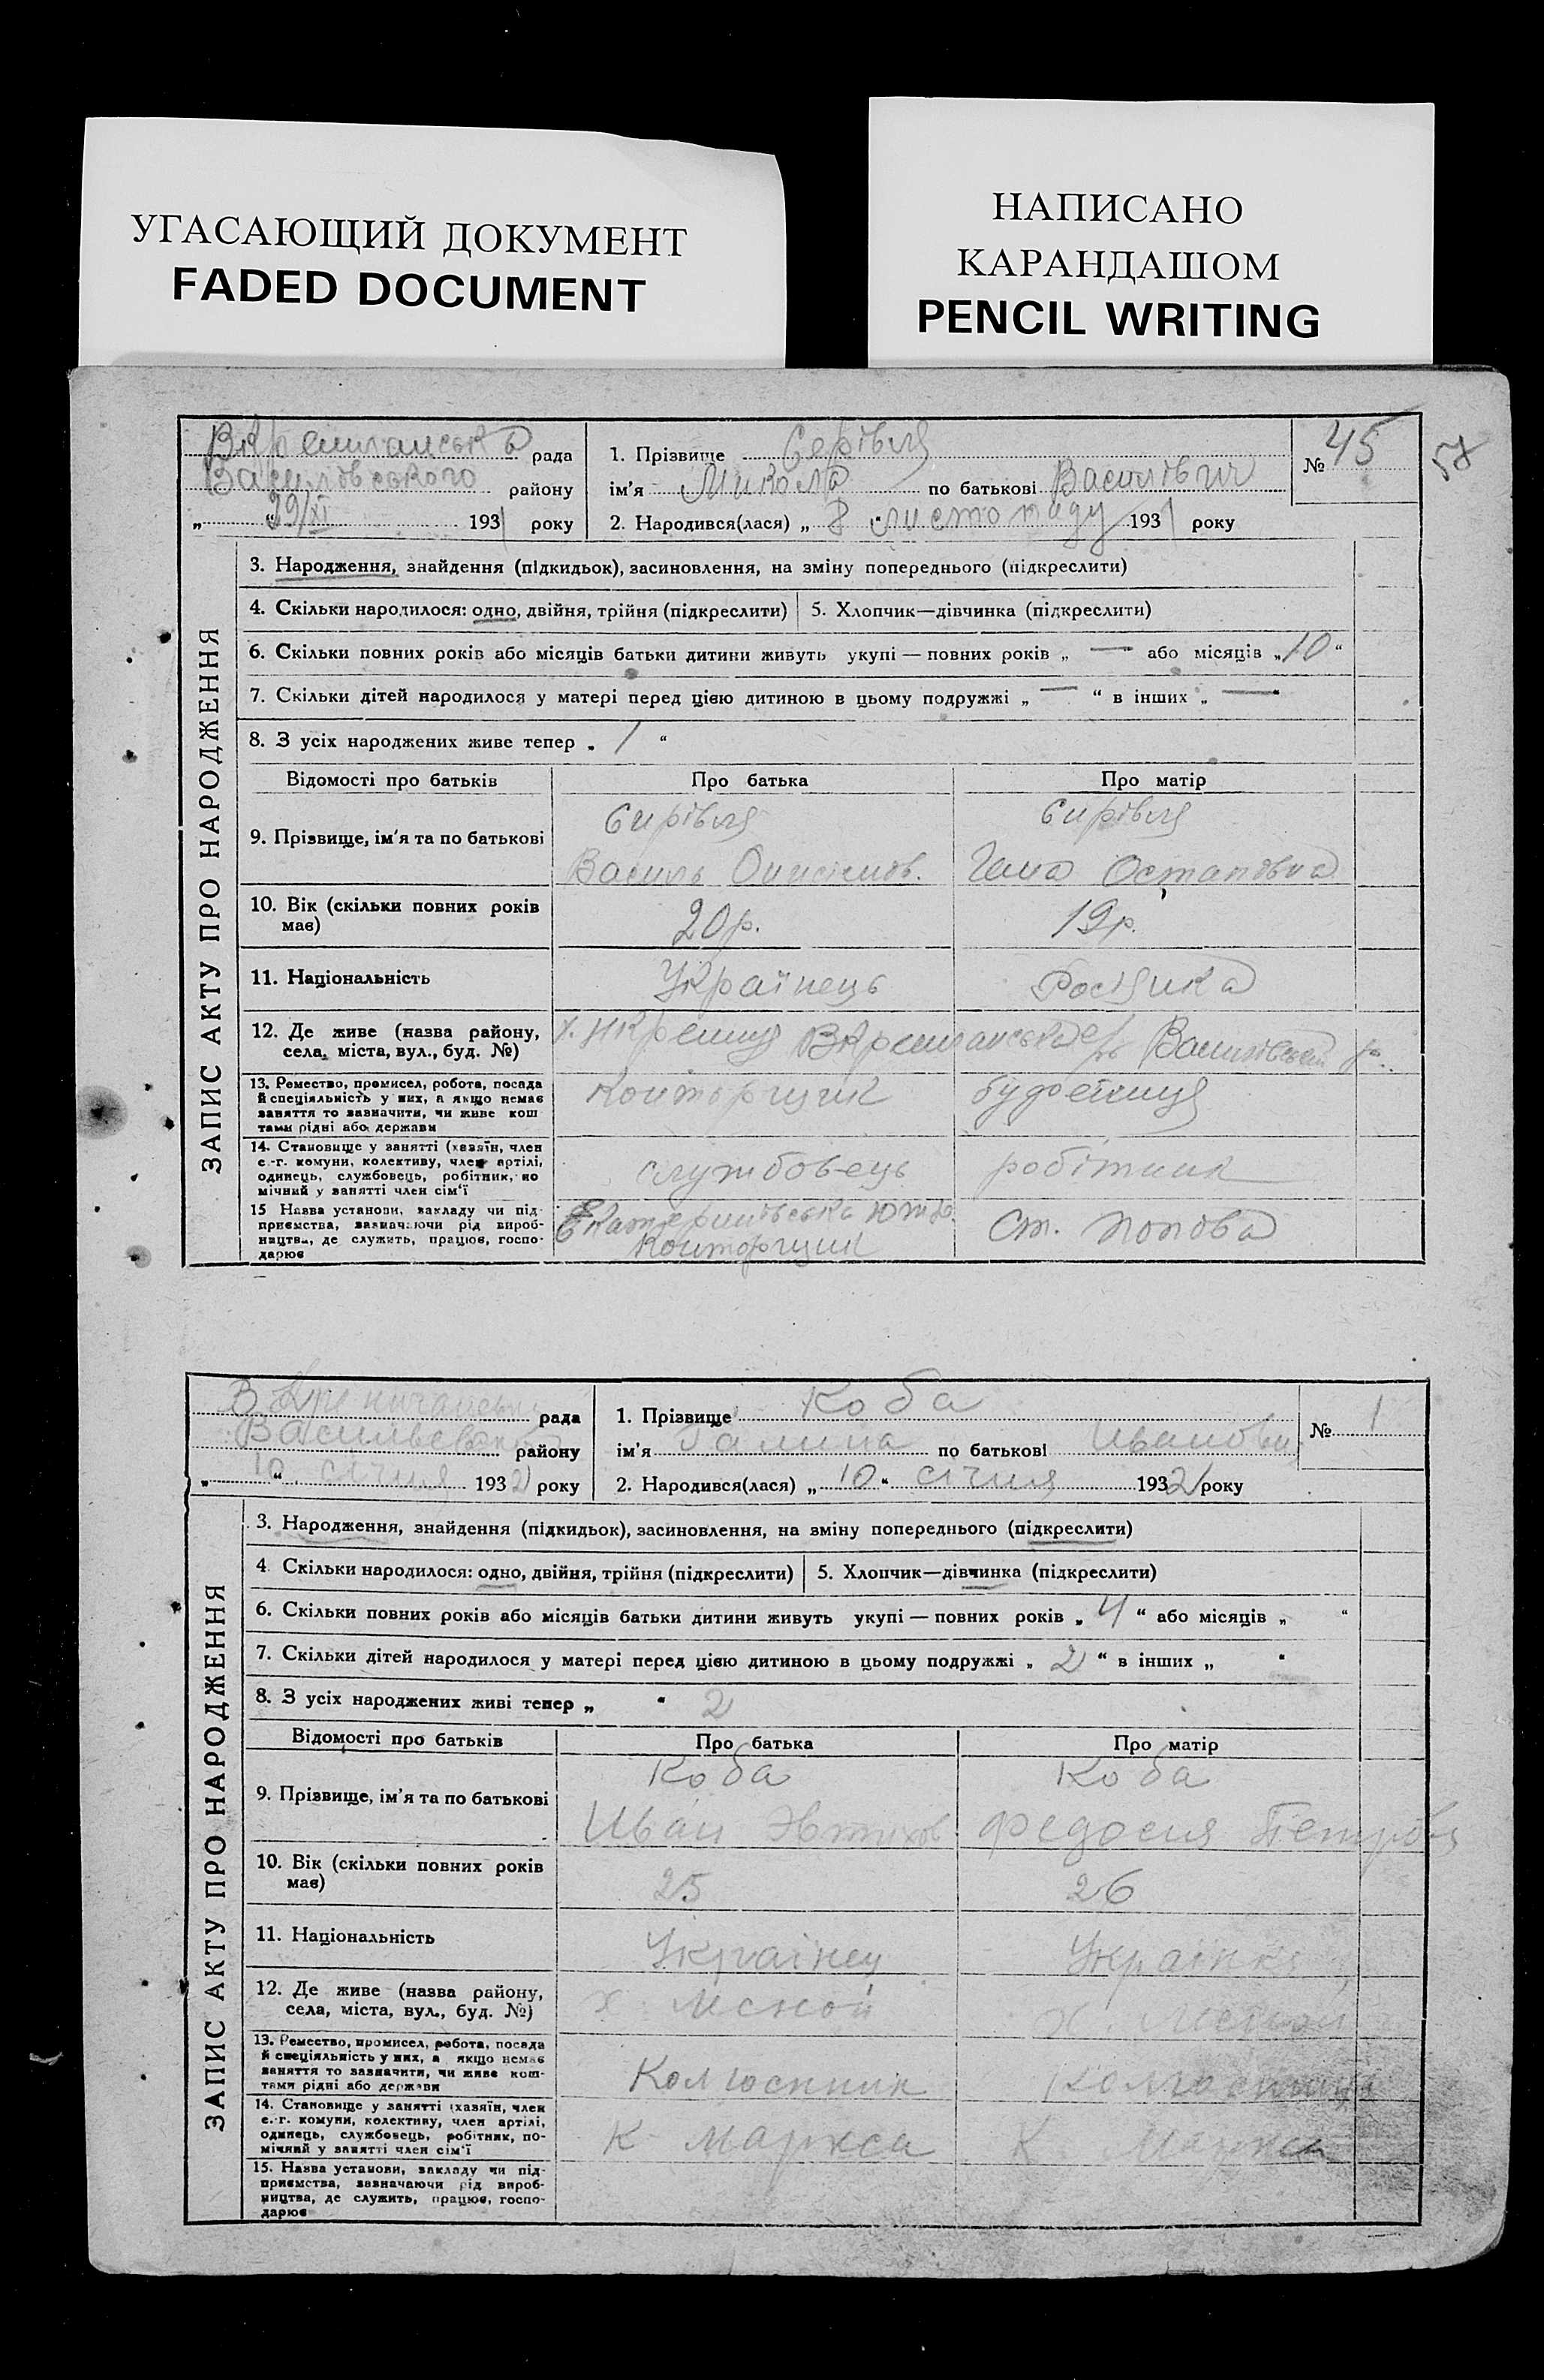 УГАСАЮЩИЙ ДОКУМЕНТ
FADED DOCUMENT
НАПИСАНО
КАРАНДАШОМ
PENCIL WRITING
рада
Василівського району
„ 29/XI “ 1931 року
1. Прізвище
ім'я Микола по батькові Василівич
2. Народився(лася) „ 8 “ листопаду 1931 року
№ 45
58
ЗАПИС АКТУ ПРО НАРОДЖЕННЯ
3. Народження, знайдення (підкидьок), засиновлення, на зміну попереднього (підкреслити)
4. Скільки народилося: одно, двійня, трійня (підкреслити) 5. Хлопчик—дівчинка (підкреслити)
6. Скільки повних років або місяців батьки дитини живуть укупі — повних років „ — або місяців „10“
7. Скільки дітей народилося у матері перед цією дитиною в цьому подружжі „ — “ в інших „ — “
8. З усіх народжених живе тепер „ 1 “
Відомості про батьків Про батька Про матір
9. Прізвище, ім'я та по батькові
Василь Остаповна
10. Вік (скільки повних років
має)
20 р. 19 р.
11. Національність Українець
12. Де живе (назва району,
села, міста, вул., буд. №)
13. Ремество, промисел, робота, посада
й спеціяльність у них, а якщо немає
заняття то зазначити, чи живе кош
тами рідні або держави
Конторщик
14. Становище у занятті (хазяїн, член
с.-г. комуни, колективу, член артілі,
одинець, службовець, робітник, по
мічний у занятті член сім'ї
службовець робітник
15 Назва установи, закладу чи під
приємства, зазначаючи рід вироб-
ництва, де служить, працює, госпо-
дарює
Конторщик
ст. Попова
рада
району
„ 10 “ січня 1932 року
1. Прізвище Коба
ім'я Галина по батькові
2. Народився(лася) „ 10 “ січня 1932 року
№ 1
ЗАПИС АКТУ ПРО НАРОДЖЕННЯ
3. Народження, знайдення (підкидьок), засиновлення, на зміну попереднього (підкреслити)
4 Скільки народилося: одно, двійня, трійня (підкреслити) 5. Хлопчик—дівчинка (підкреслити)
6. Скільки повних років або місяців батьки дитини живуть укупі — повних років „ 4 “ або місяців „ “
7. Скільки дітей народилося у матері перед цією дитиною в цьому подружжі „ 2 “ в інших „ “
8. З усіх народжених живі тепер „ “ 2
Відомості про батьків Про батька Про матір
Коба Коба
9. Прізвище, ім'я та по батькові
Иван Федосия
10. Вік (скільки повних років
має)
25 26
11. Національність Українец Українка
12. Де живе (назва району,
села, міста, вул., буд. №)
13. Ремество, промисел, робота, посада
й спеціяльність у них, а якщо немає
заняття то зазначити, чи живе кош-
тами рідні або держави
14. Становище у занятті (хазяїн, член
с.-г. комуни, колективу, член артілі,
одинець, службовець, робітник, по-
мічний у занятті член сім'ї
К Маркса К Маркса
15. Назва установи, закладу чи під-
приємства, зазначаючи рід вироб-
ництва, де служить, працює, госпо-
дарює